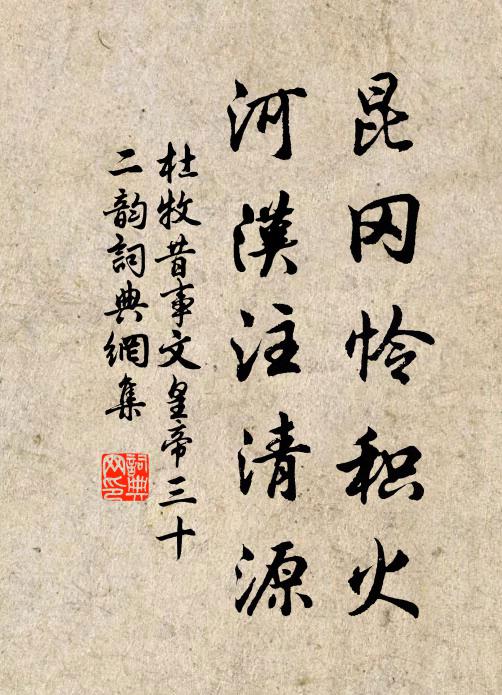 昆冈怜积火
河漢注清源
杜牧昔事文皇帝三十
二韵詞典網集
詞典
网印